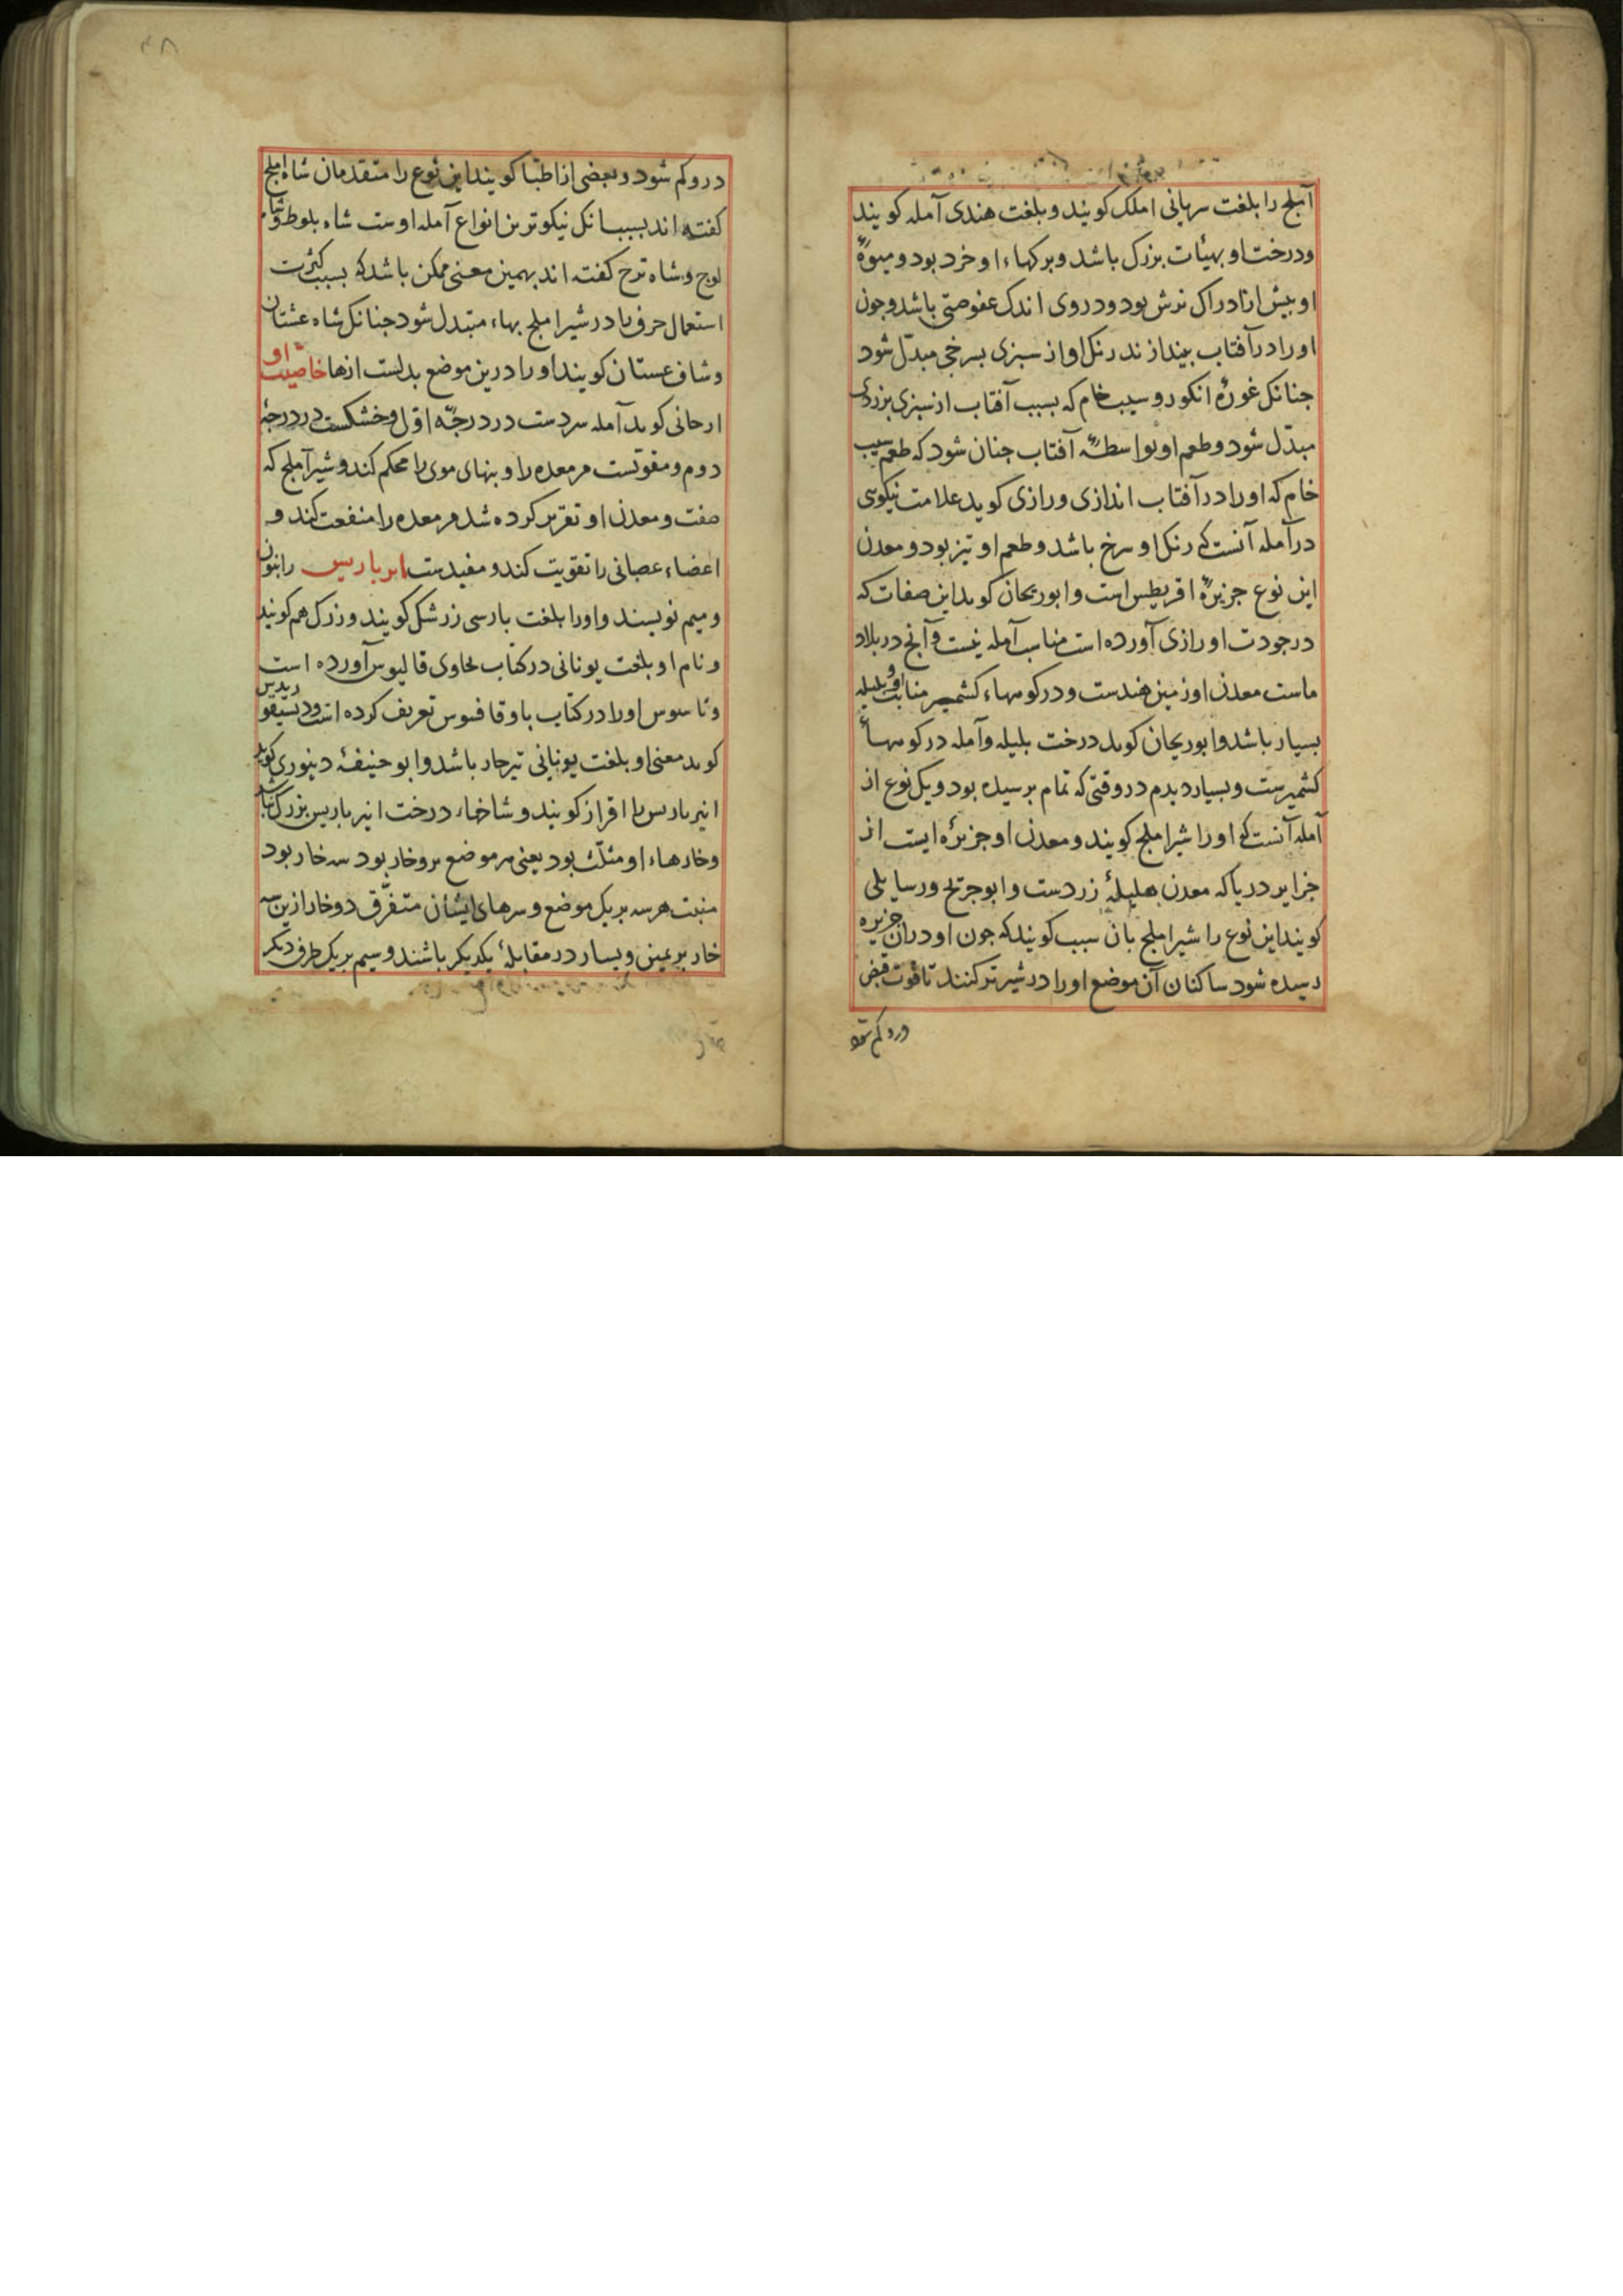 آملج را بلغت سریانی املک کویند و بلغت هندی آمله کویند
و درخت او بهیئات بزرک باشد و برکهاء او خرد بود و میوهٔ
او بیش از ادراک ترش بود و در وی اندک عفوصتی باشد و جون
او را در آفتاب بیندازند رنک او از سبزی بسرخی مبدّل شود
جنانک غورهٔ انکور و سیب خام که بسبب آفتاب از سبزی بزردی
مبدّل شود و طعم او بواسطهٔ آفتاب جنان شود که طعم سیب
خام که او را در آفتاب اندازی و رازی کوید علامت نیکوی
در آمله آنست که رنک او سرخ باشد و طعم او تیز بود و معدن
این نوع جزیرهٔ اقریطس است و ابوریحان کوید این صفات که
در جودت او رازی آورده است مناسب آمله نیست و آنج در بلاد
ماست معدن او زمین هندست و در کوهاء کشمیر منابت او و بلیله
بسیار باشد و ابوریحان کوید درخت بلیله و آمله در کوهاء
کشمیرست و بسیار دیدم در وقتی که تمام برسیده بود و یک نوع از
آمله آنست که او را شیراملج کویند و معدن او جزیرهٔ ایست از
جزایر دریا که معدن هلیلهٔ زردست و ابو جریح و رسایلی
کویند این نوع را شیراملج بان سبب کویند که جون او در ان جزیره
رسیده شود ساکنان آن موضع او را در شیر تر کنند تا قوت قبض
درو کم شود
درو کم شود و بعضی از اطبّا کویند این نوع را متقدمان شاه املج
کفته اند بسبب انک نیکوترین انواع آمله اوست شاه بلوط و شاه
لوج و شاه ترج کفته اند بهمین معنی ممکن باشد که بسبب کثرت
استعمال حرف را در شیراملج بهاء متبدل شود جنانک شاه عشتان
و شاف عستان کویند او را درین موضع بدلست از ها خاصیت او
ارجانی کوید آمله سردست در درجهٔ اوّل و خشکست در درجهٔ
دوم و مقویست مر معده را و بنهای موی را محکم کند و شیرآملج که
صفت و معدن او تقریر کرده شد مر معده را منفعت کند و
اعضاء عصبانی را تقویت کند و مفیدست انبرباریس را بنون
و میم نویسند و او را بلغت بارسی زرشک کویند و زرک هم کویند
و نام او بلغت یونانی در کتاب حاوی قالیوس آورده است
و تاسوس او را در کتاب باوقافسوس تعریف کرده است و دیسیقوریدس
کوید معنی او بلغت یونانی تیزخار باشد و ابو حنیفهٔ دینوری کوید
انبرباریس را اقرار کویند و شاخهاء درخت انبرباریس بزرک باشد
و خارهاء او مثلّث بود یعنی هر موضع برو خار بود سه خار بود
منبت هر سه بر یک موضع و سرهای ایشان متفرّق دو خار ازین سه
خار بر یمین و یسار در مقابلهٔ یکدیکر باشند و سیم بر یک طرف دیکر